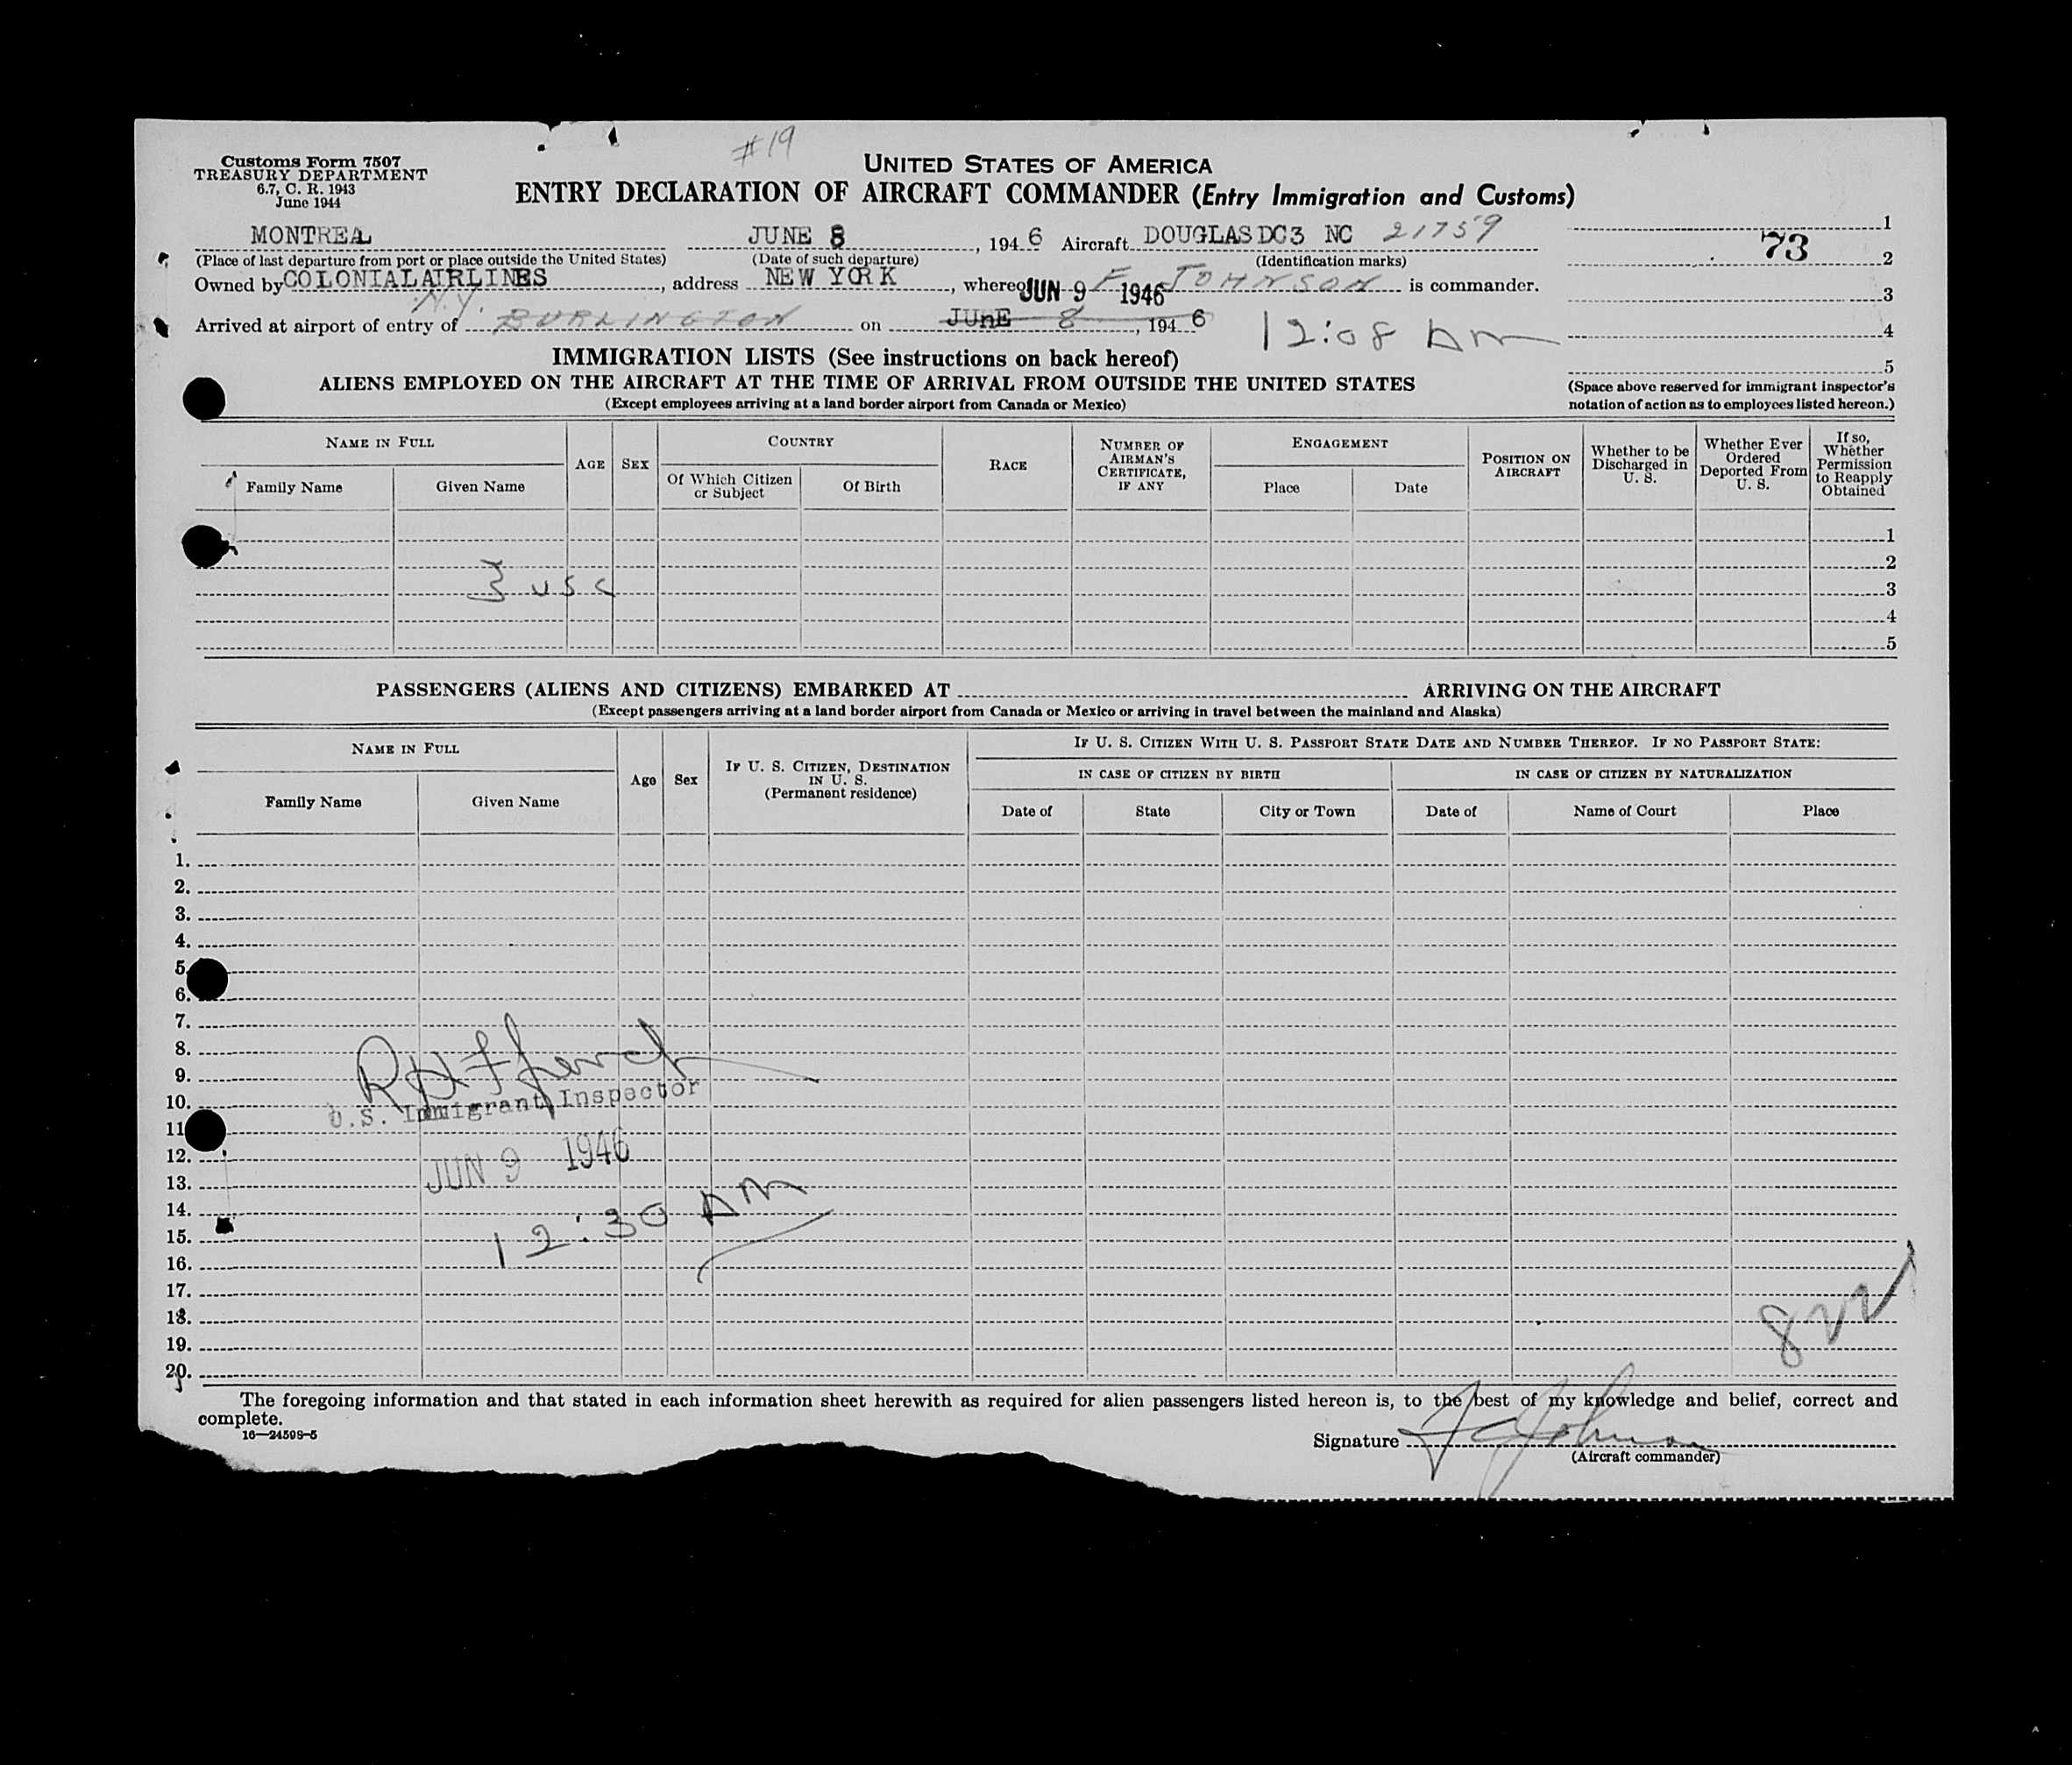 #19
Customs Form 7507
TREASURY DEPARTMENT
6.7, C. R. 1943
June 1944
UNITED STATES OF AMERICA
ENTRY DECLARATION OF AIRCRAFT COMMANDER (Entry Immigration and Customs)
MONTREAL JUNE 8, 1946 Aircraft DOUGLAS DC3 NC 21759
(Place of last departure from port or place outside the United States) (Date of such departure) (Identification marks)
Owned by COLONIAL AIRLINES, address NEW YORK, whereof F JOHNSON is commander.
JUN 9 1946
N.Y.
Arrived at airport of entry of BURLINGTON on JUnE 8, 1946 12:08 AM
1
73
2
3
4
5
IMMIGRATION LISTS (See instructions on back hereof)
ALIENS EMPLOYED ON THE AIRCRAFT AT THE TIME OF ARRIVAL FROM OUTSIDE THE UNITED STATES
(Except employees arriving at a land border airport from Canada or Mexico)
(Space above reserved for immigrant inspector's
notation of action as to employees listed hereon.)
NAME IN FULL
Family Name
Given Name
AGE
SEX
COUNTRY
Of Which Citizen
or Subject
Of Birth
RACE
NUMBER OF
AIRMAN'S
CERTIFICATE,
IF ANY
ENGAGEMENT
Place
Date
POSITION ON
AIRCRAFT
Whether to be
Discharged in
U. S.
Whether Ever
Ordered
Deported From
U. S.
If so,
Whether
Permission
to Reapply
Obtained
1
2
3 USC
3
4
5
PASSENGERS (ALIENS AND CITIZENS) EMBARKED AT ARRIVING ON THE AIRCRAFT
(Except passengers arriving at a land border airport from Canada or Mexico or arriving in travel between the mainland and Alaska)
NAME IN FULL
Family Name
Given Name
Age
Sex
IF U. S. CITIZEN, DESTINATION
IN U. S.
(Permanent residence)
IF U. S. CITIZEN WITH U. S. PASSPORT STATE DATE AND NUMBER THEREOF. IF NO PASSPORT STATE:
IN CASE OF CITIZEN BY BIRTH
IN CASE OF CITIZEN BY NATURALIZATION
Date of
State
City or Town
Date of
Name of Court
Place
1.
2.
3.
4.
5.
6.
7.
8.
9.
10.
U.S. Immigrant Inspector
11
12.
JUN 9 1946
13.
14.
12:30 AM
15.
16.
17.
18.
19.
20.
The foregoing information and that stated in each information sheet herewith as required for alien passengers listed hereon is, to the best of my knowledge and belief, correct and
complete.
16—24598-5
Signature Johnson
(Aircraft commander)